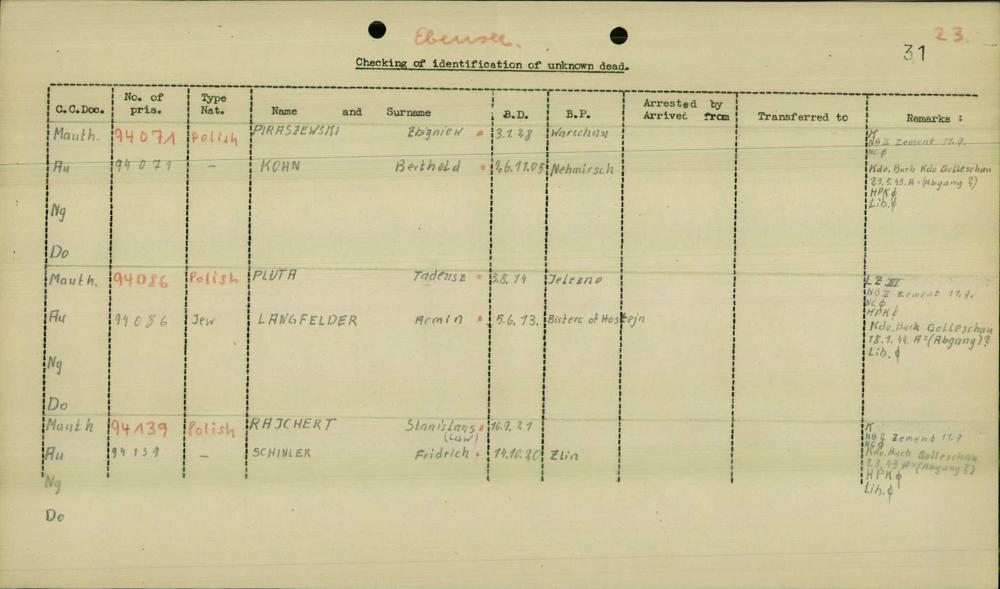 Ebensee.
23.
31
Checking of identification of unknown dead.
C.C.Doc. No. of pris. Type Nat. Name and Surname B.D. B.P. Arrested by Arrived from Transferred to Remarks :
Mauth. 94071 Polish PIRASZEWSKI Zbigniew 3.1.28 Warschau K
NB II Zement 11.9.
NC ϕ
Au 94071 – KOHN Berthold 26.11.05 Nehmirsch Kdo. Buch Kdo Golleschau
23.5.43. A-(Abgang?)
HPK ϕ
Lib. ϕ
Ng
Do
Mauth. 94086 Polish PLUTA Tadeusz 3.8.14 Jelezno LZ III
NB II Zement 11.9.
NC ϕ
HPK ϕ
Au 94086 Jew LANGFELDER Armin 5.6.13. Bisterc of Hostejn Kdo. Buch Golleschau
18.1.44. A=(Abgang)?
Lib. ϕ
Ng
Do
Mauth 94139 Polish RAJCHERT Stanislaus 16.9.21 K
(Law)
NB II Zement 11.9
NC ϕ
Au 94139 – SCHINLER Fridrich 14.10.20 Zlin Kdo. Buch Golleschau
2.3.43 A=(Abgang?)
HPK ϕ
Ng
Lib. ϕ
Do